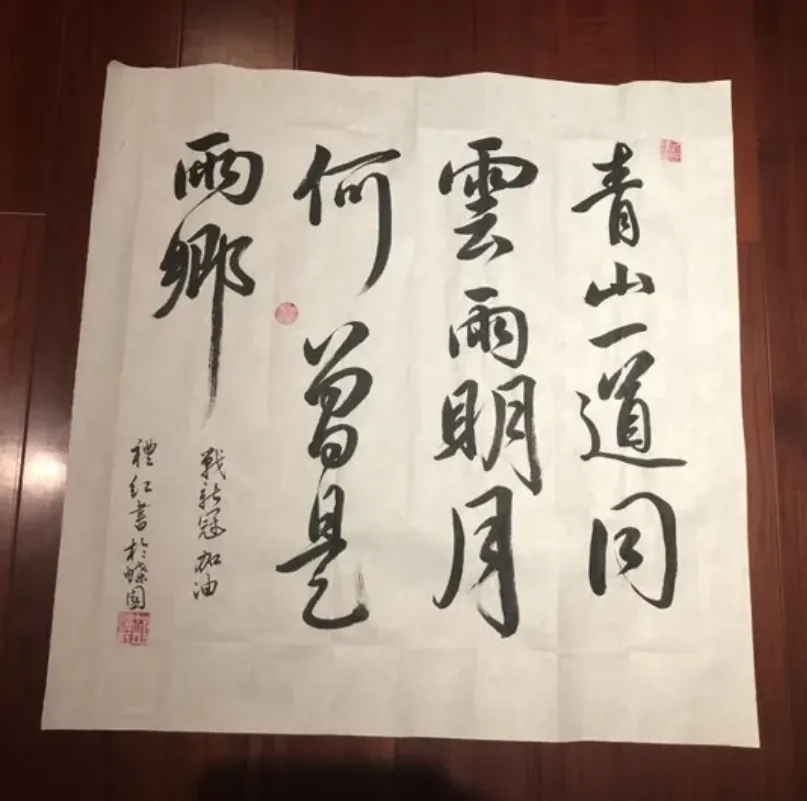 青山一道同
雲雨明月
何曾是
兩鄉
戰新冠 加油
禮紅書於